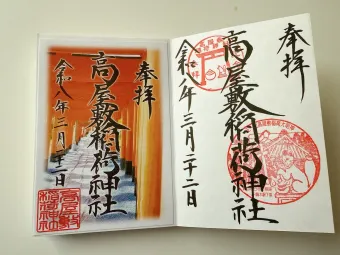 奉拝
高屋敷稲荷神社
令和八年三月二十二日
奉拝
高屋敷稲荷神社
令和八年三月二十二日